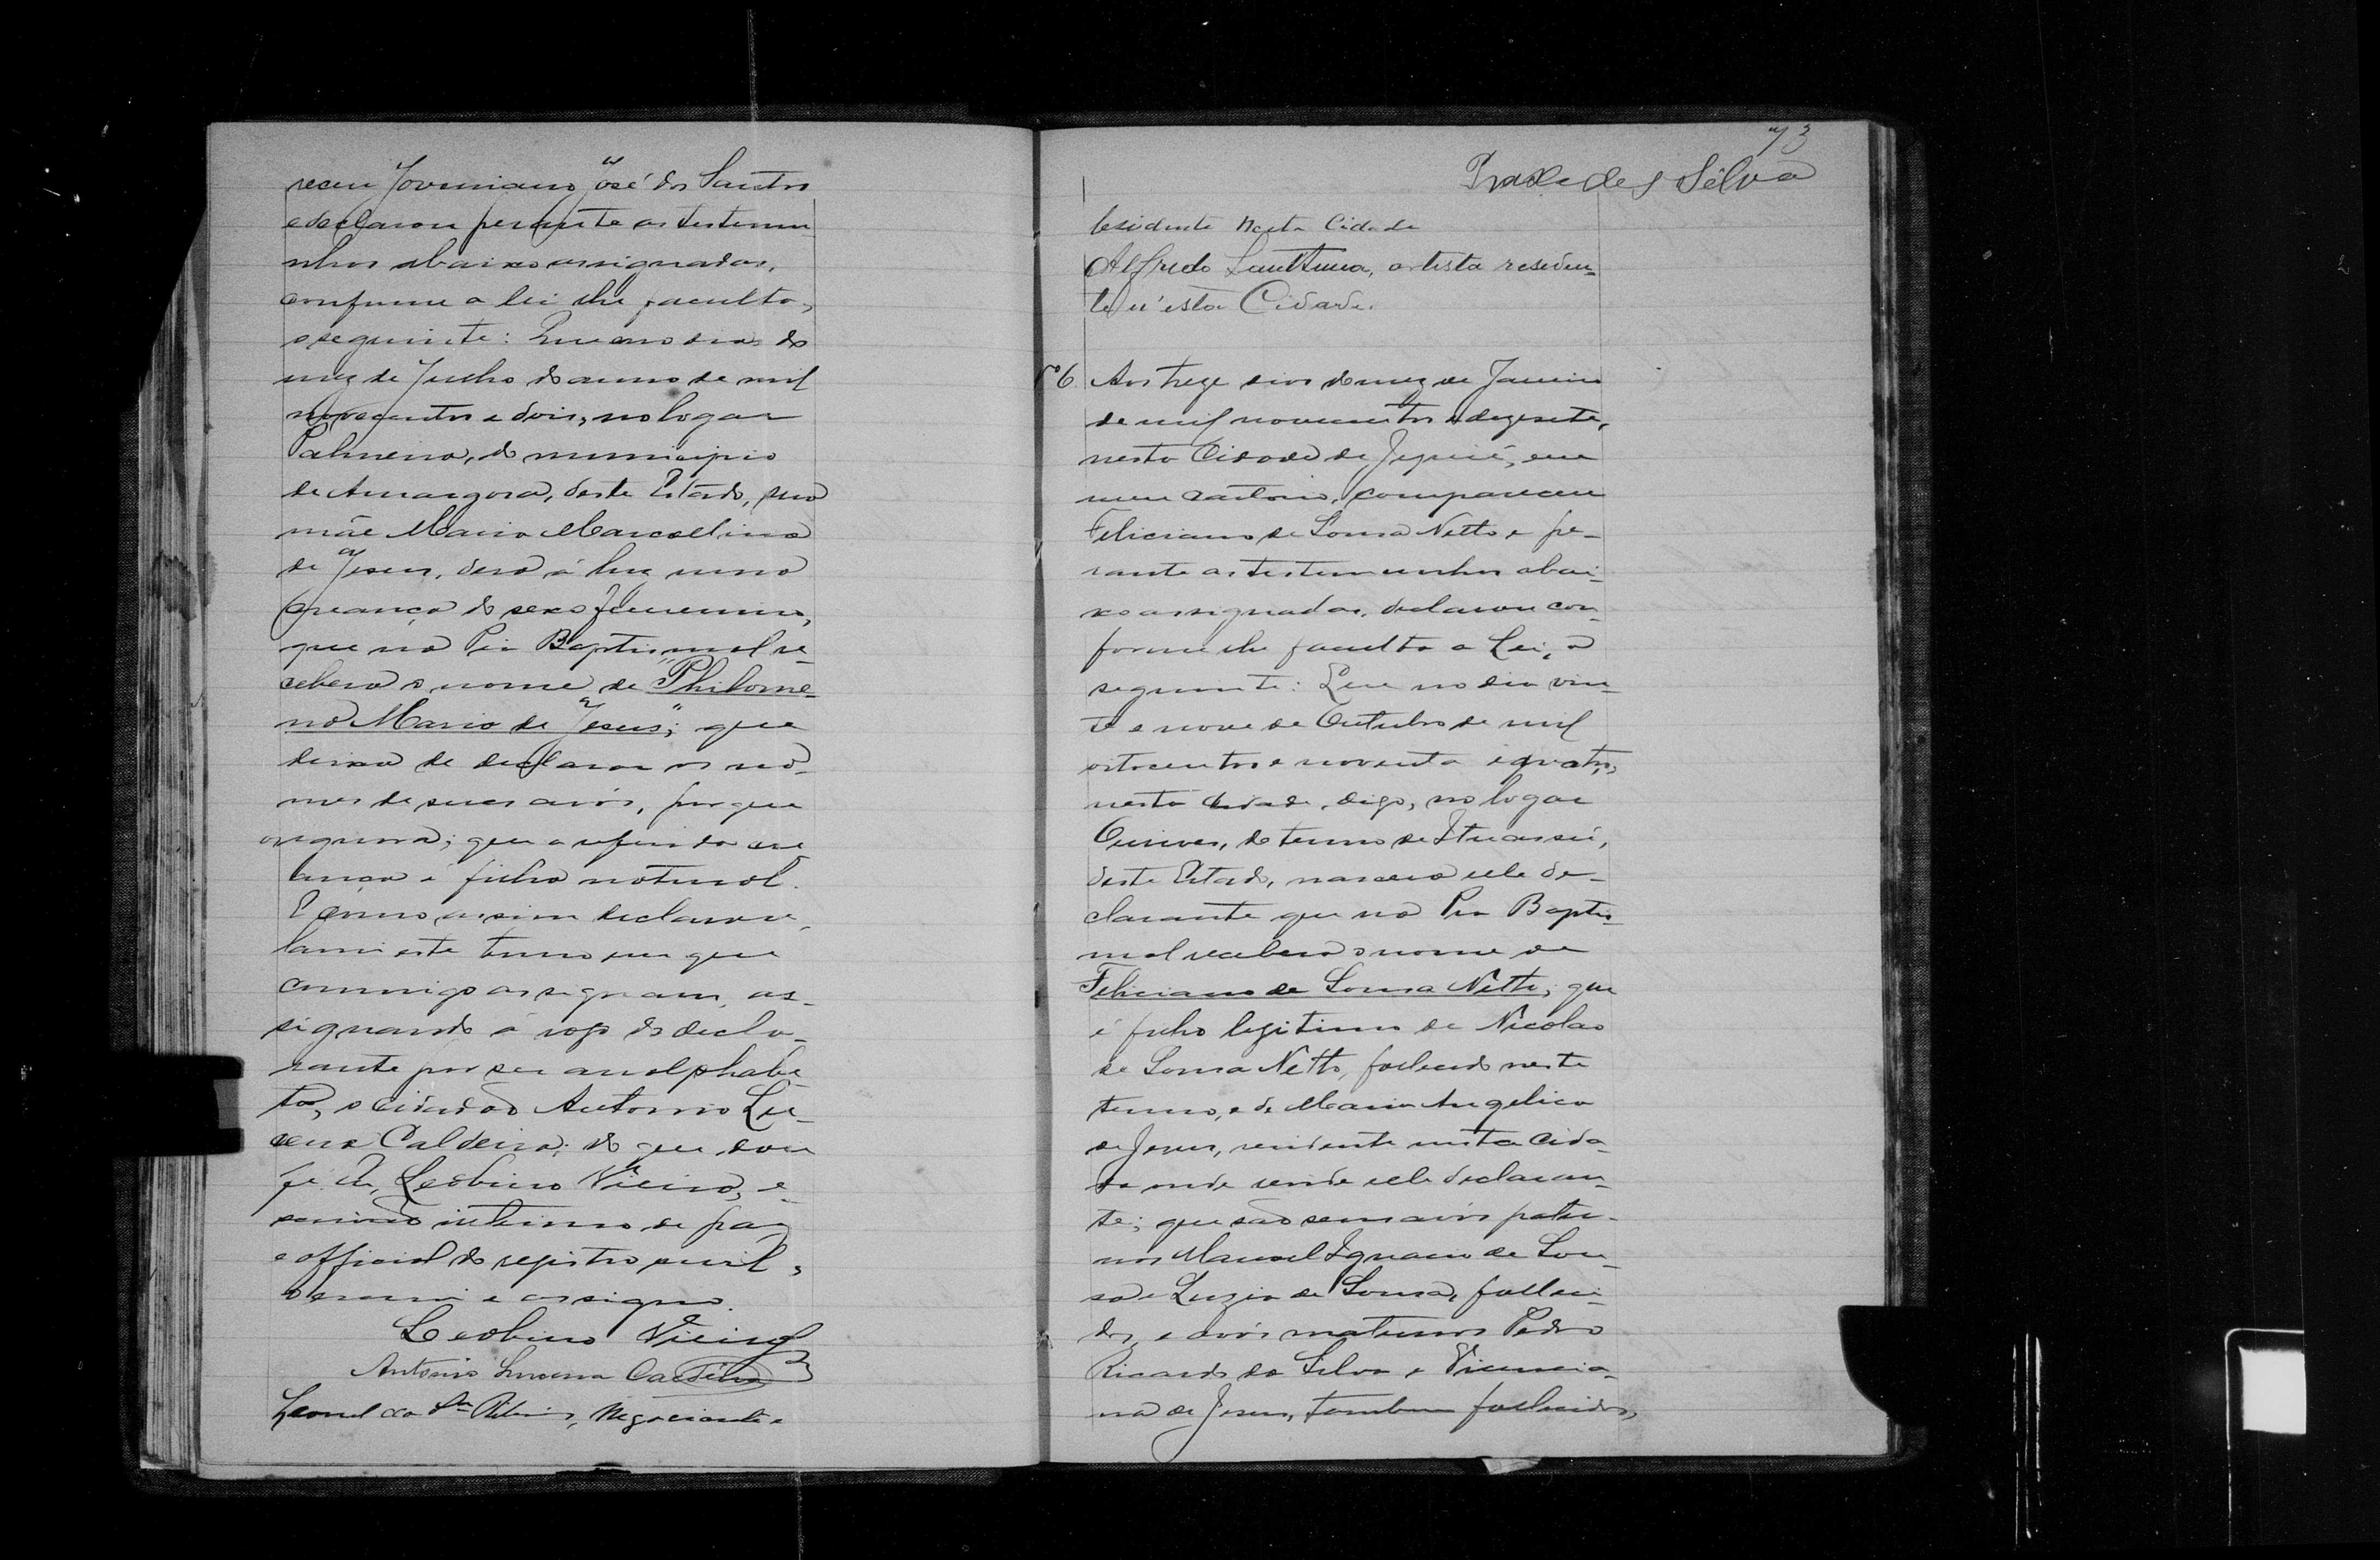 receu Joveniano José dos Santos
e declarou perante as testemu-
nhas abaixo assignadas,
conforme a lei lhe faculta,
o seguinte: Que aos dias do
mez de Junho do anno de mil
novecentos e dois, no logar
Palmeira, do municipio
de Amargosa, deste Estado, sua
mãe Maria Marcellina
de Jesus, dera á luz uma
creança do sexo femenino,
que na Pia Baptismal re-
cebera o nome de "Philome-
na Maria de Jesus"; que
deixa de declarar os no-
mes de seus avós, porque
os ignora; que a referida cre
ança é filha natural.
E como assim declarou,
lavrei este termo em que
commigo assignam, as-
signando á rogo do decla-
rante por ser analphabe
to, o cidadão Antonio Lu-
cena Caldeira; do que dou
fé. Eu, Leobino Vieira, e-
scrivão interino de paz
e official do registro civil,
o escrevi e assigno.
Leobino Vieira
Antonio Lucena Caldeira
Leonel da Sa Ribeiro, Negociante
73
Praxedes Silva
residente nesta Cidade
Alfredo Santtanna, artista residen-
te n'esta Cidade.
Nº 6. Aos treze dias do mez de Janeiro
de mil novecentos e dezesete,
nesta Cidade de Jequié, em
meu cartorio, compareceu
Feliciano de Sousa Netto e pe-
rante as testemunhas abai-
xo assignadas, declarou con-
forme lhe faculta a Lei, o
seguinte: Que no dia vin-
te e nove de Outubro de mil
oitocentos e noventa e quatro,
nesta cidade, digo, no logar
Ourives, do termo de Ituassú,
deste Estado, nascera elle de-
clarante que na Pia Baptis-
mal recebera o nome de
Feliciano de Sousa Netto; que
é filho legitimo de Nicolao
de Sousa Netto, fallecido neste
termo, e de Maria Angelica
de Jesus, residente nesta cida-
de onde reside elle declaran-
te; que são seus avós pater-
nos Manoel Ignacio de Sou-
sa e Luzia de Sousa, falleci-
dos, e avós maternos Pedro
Ricardo da Silva e Vicencia-
na de Jesus, tambem fallecidos,